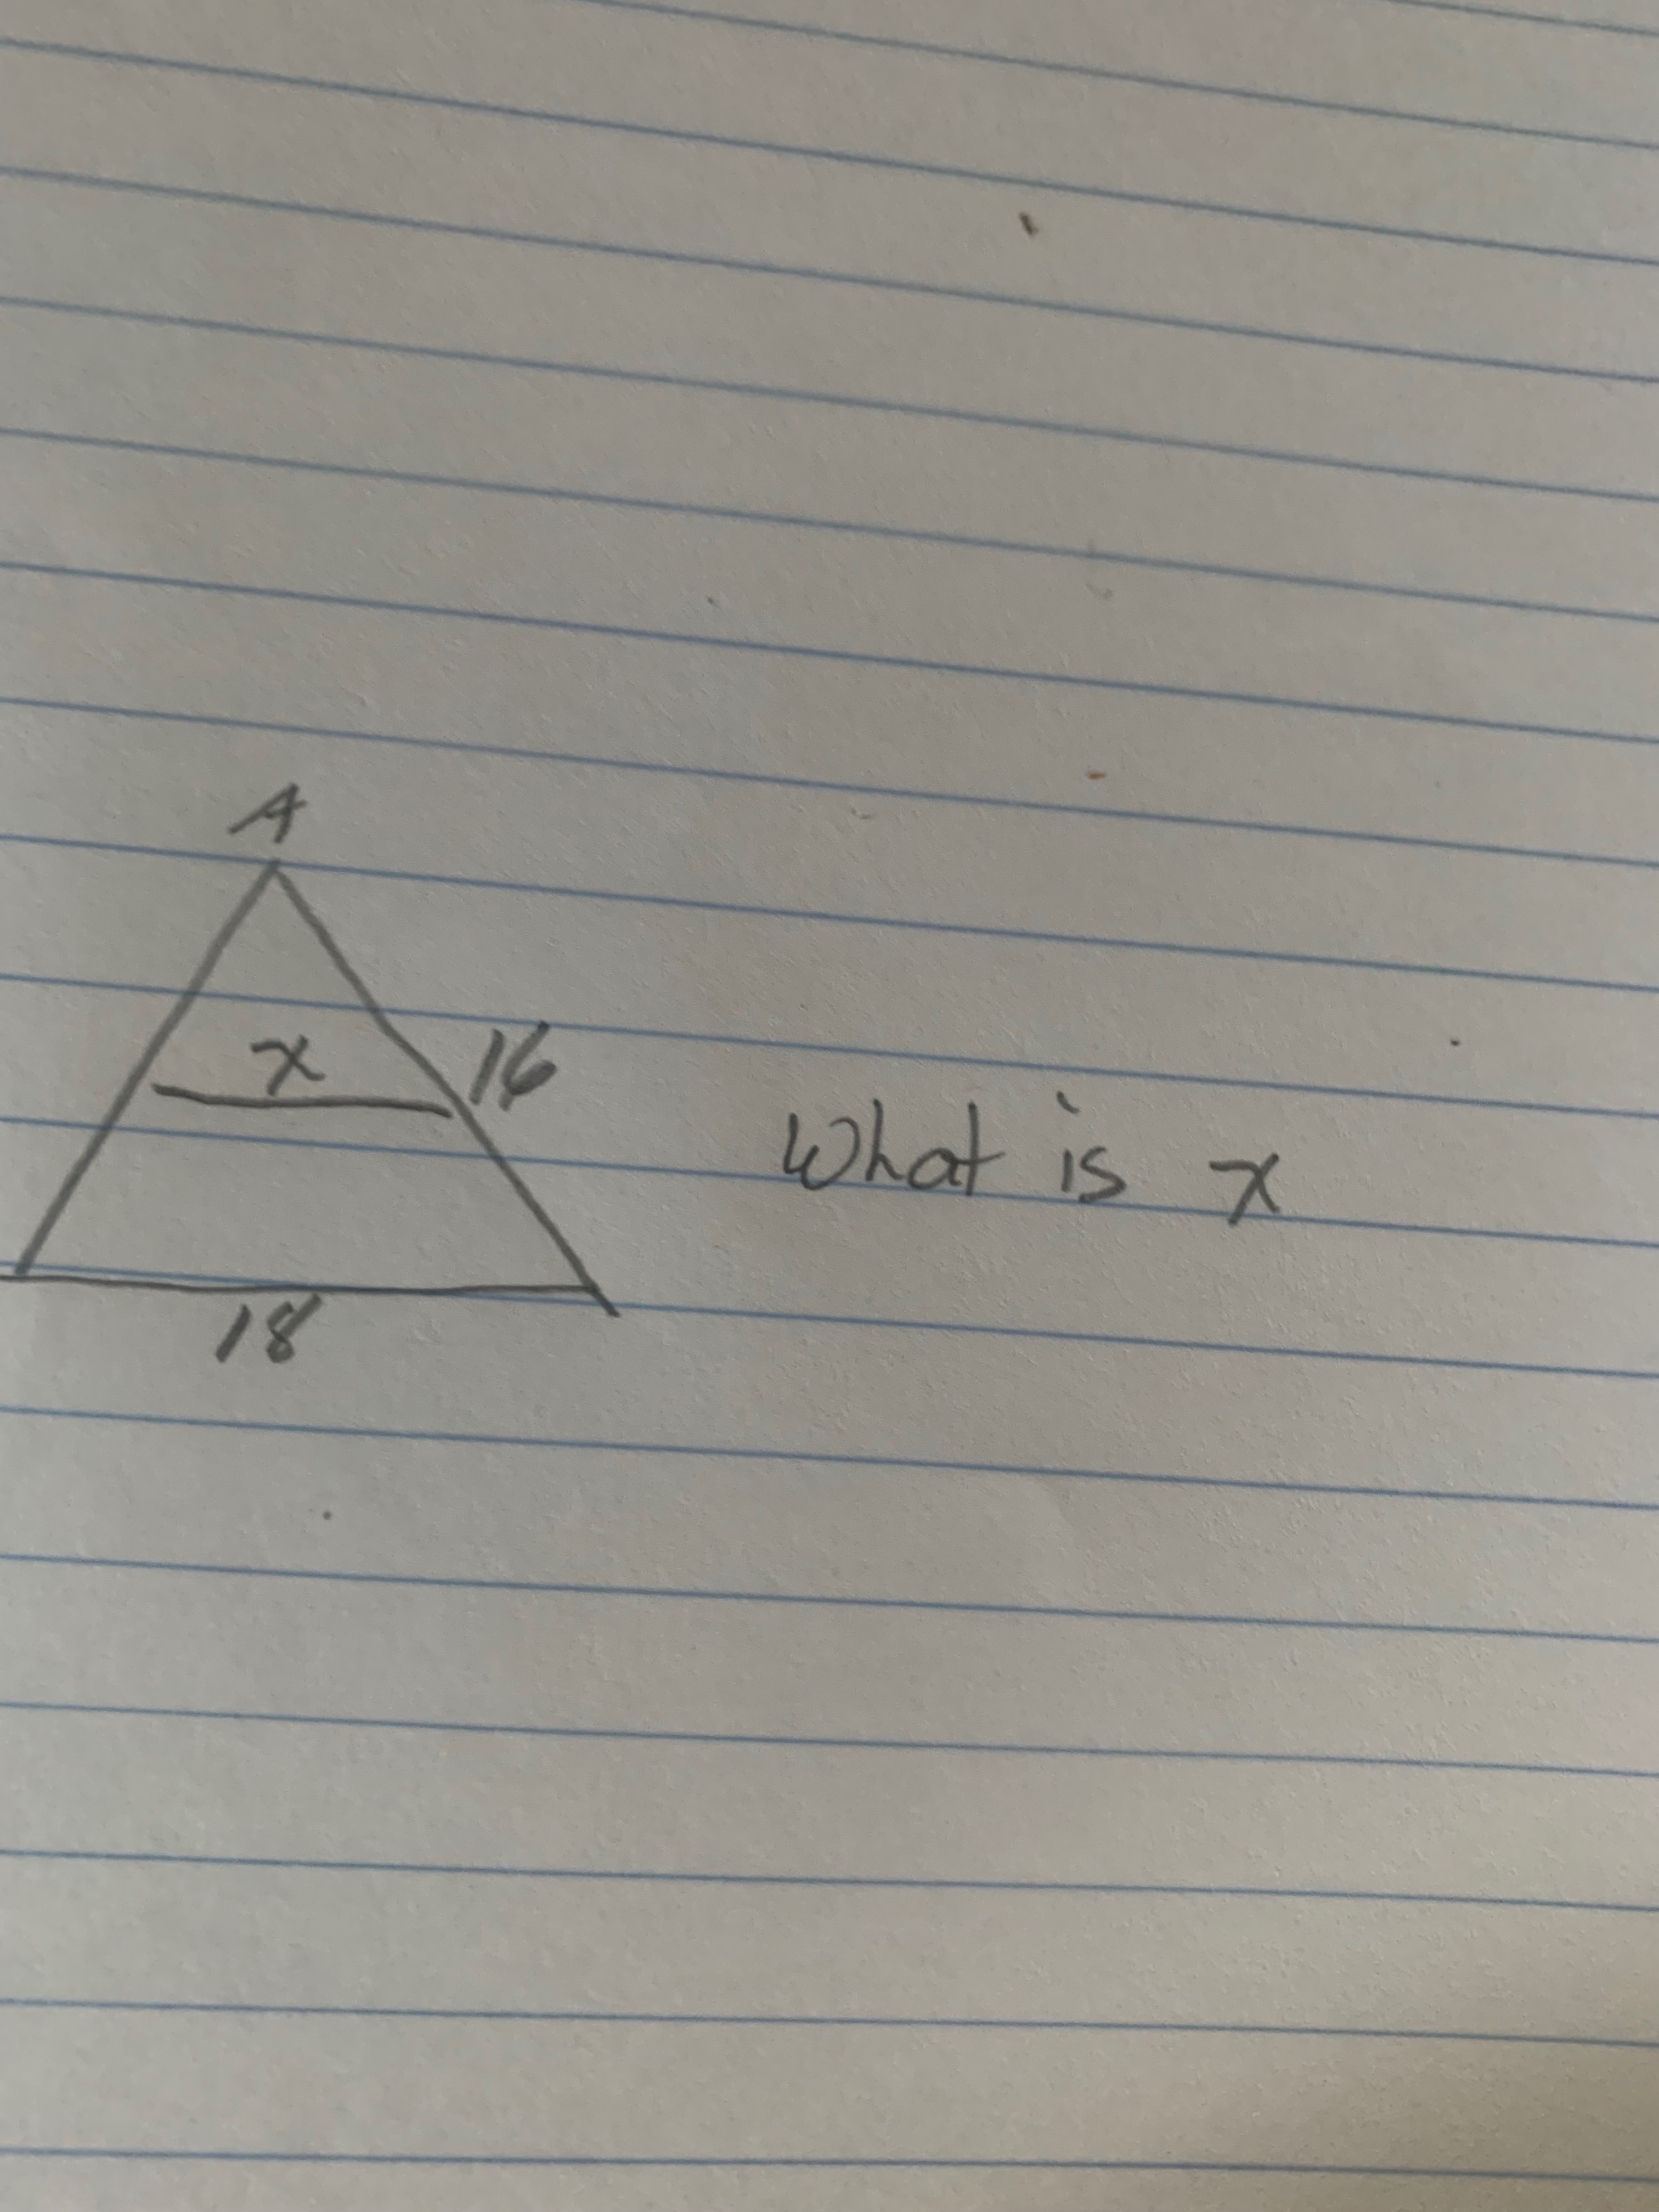 A
x
16
What is x
18